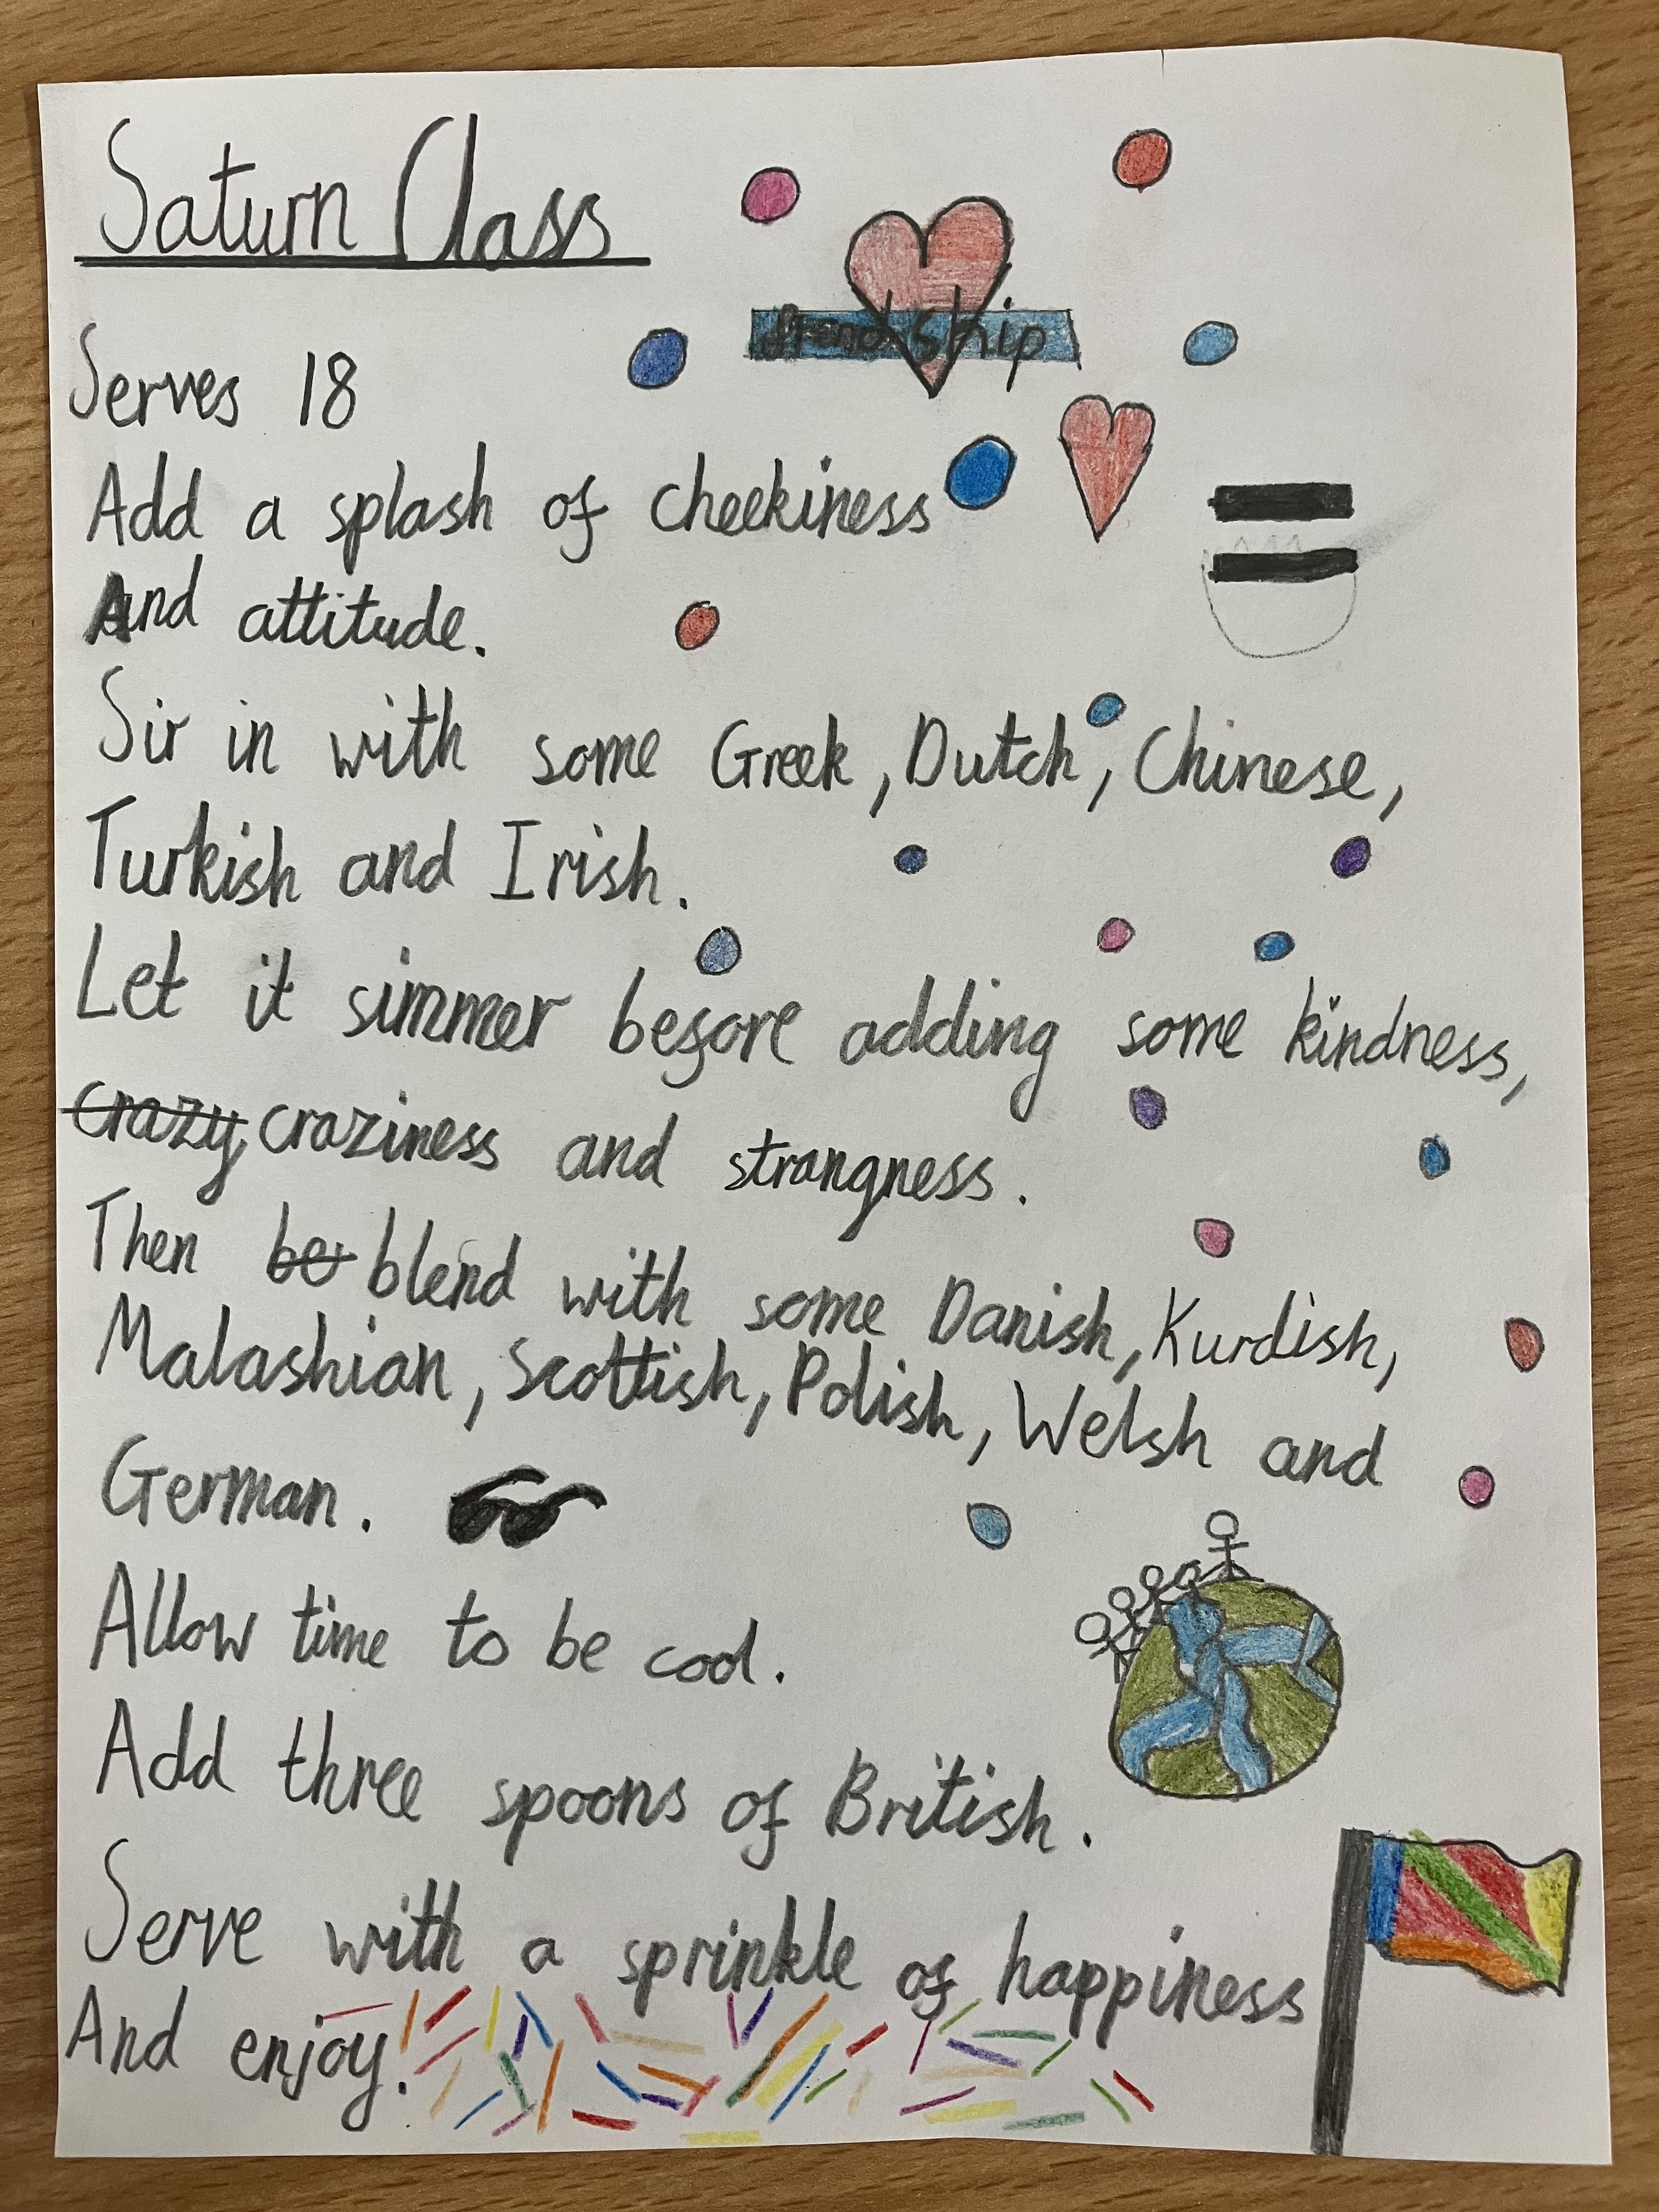 Saturn Class
friendship
Serves 18
Add a splash of cheekiness
And attitude.
Sir in with some Greek, Dutch, Chinese,
Turkish and Irish.
Let it simmer before adding some kindness,
crazy craziness and strangness.
Then be blend with some Danish, Kurdish,
Malashian, Scottish, Polish, Welsh and
German.
Allow time to be cool.
Add three spoons of British.
Serve with a sprinkle of happiness
And enjoy.